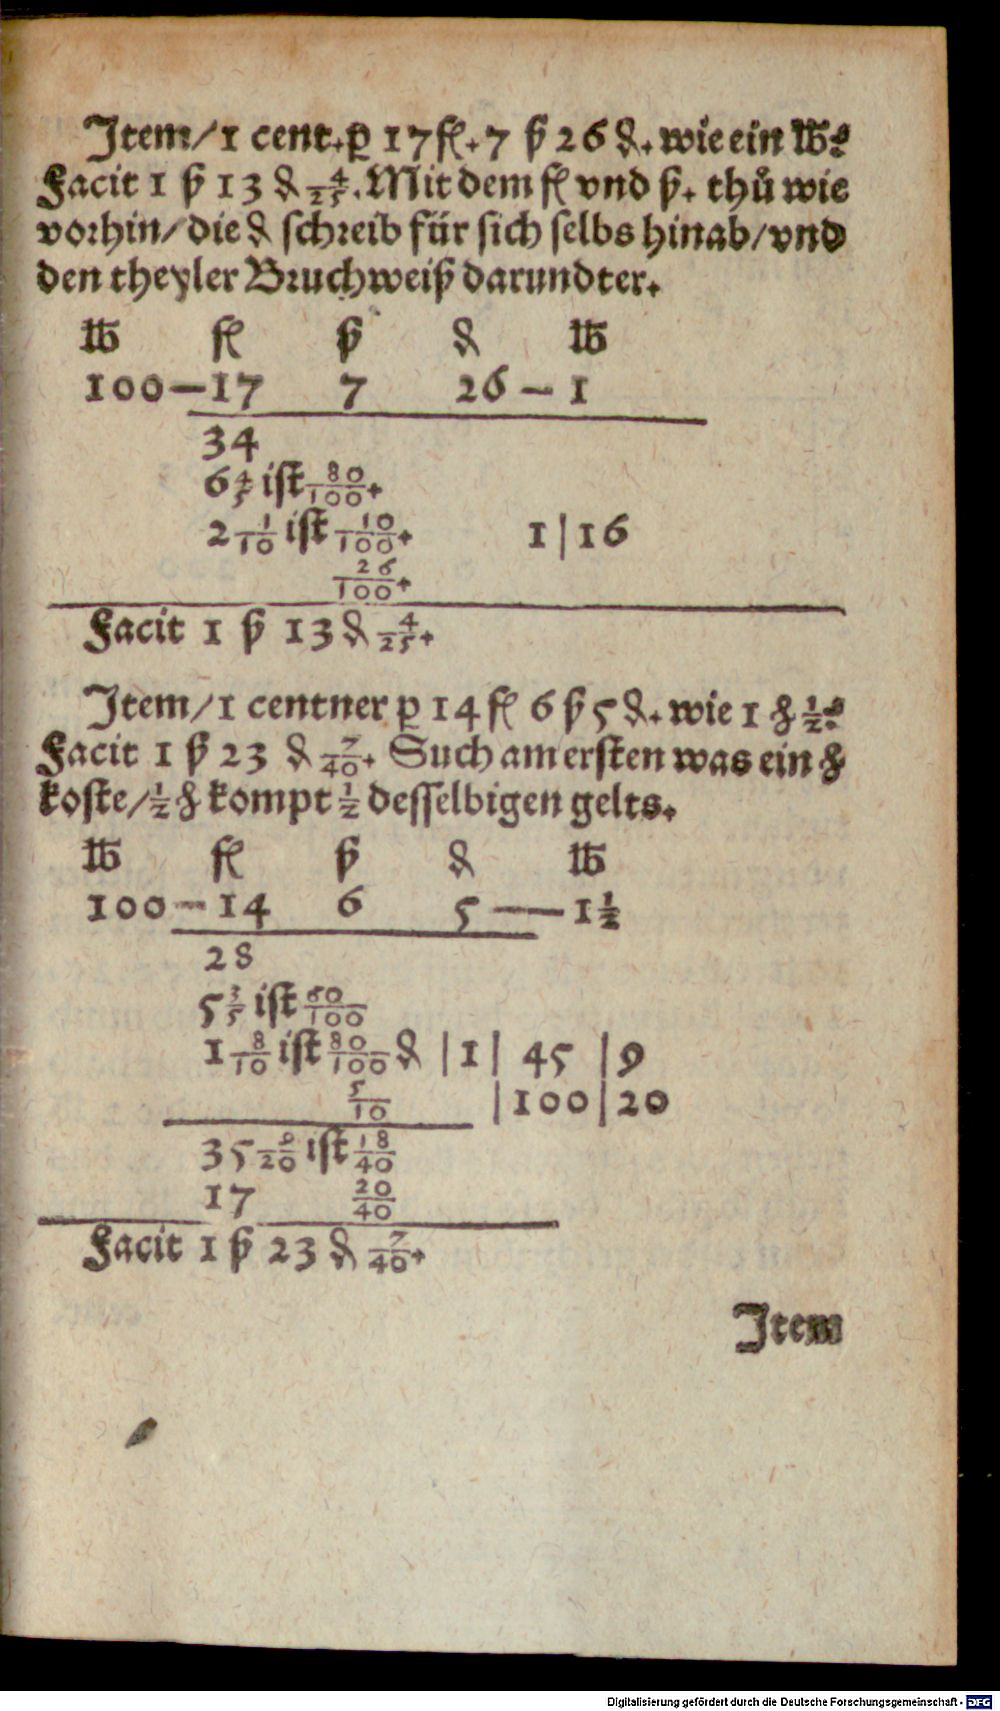 Item/1 cent. ꝑ 17 fl. 7 ß 26 ₰. wie ein ℔?
Facit 1 ß 13 ₰ 4/25. Mit dem fl vnd ß. thů wie
vorhin/die ₰ schreib für sich selbs hinab/vnd
den theyler Bruchweiß darundter.
℔ fl ß ₰ ℔
100—17 7 26—1
34
6 4/5 ist 80/100.
2 1/10 ist 10/100. 1|16
26/100.
Facit 1 ß 13 ₰ 4/25.
Item/1 centner ꝑ 14 fl 6 ß 5 ₰. wie 1 ℔ 1/2?
Facit 1 ß 23 ₰ 7/40. Such am ersten was ein ℔
koste/1/2 ℔ kompt 1/2 desselbigen gelts.
℔ fl ß ₰ ℔
100—14 6 5—1 1/2
28
5 3/5 ist 60/100
1 8/10 ist 80/100 ₰ |1| 45 |9
5/10 |100|20
35 9/20 ist 18/40
17 20/40
Facit 1 ß 23 ₰ 7/40.
Item
Digitalisierung gefördert durch die Deutsche Forschungsgemeinschaft - DFG